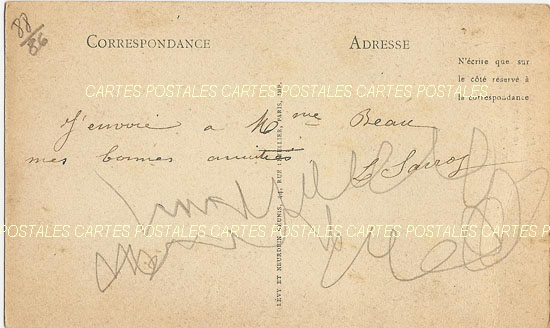 88/86
CORRESPONDANCE
ADRESSE
N'écrire que sur
le côté réservé à
la correspondance
CARTES POSTALES CARTES POSTALES CARTES POSTALES CARTES POSTALES
J'envoie a Mme Beau
mes bonnes amitiés
POSTALES CARTES POSTALES CARTES POSTALES CARTES POSTALES
LÉVY ET NEURDEIN RÉUNIS, 44, RUE LETELLIER, PARIS, IMP.